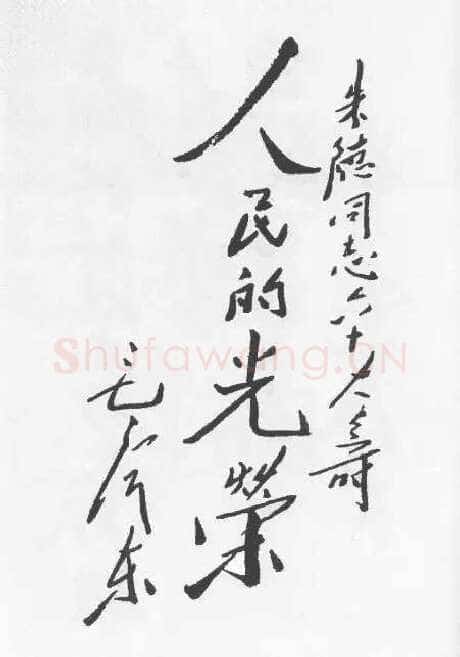 朱德同志六十大壽
人民的光榮
毛泽东
Shufawang.CN